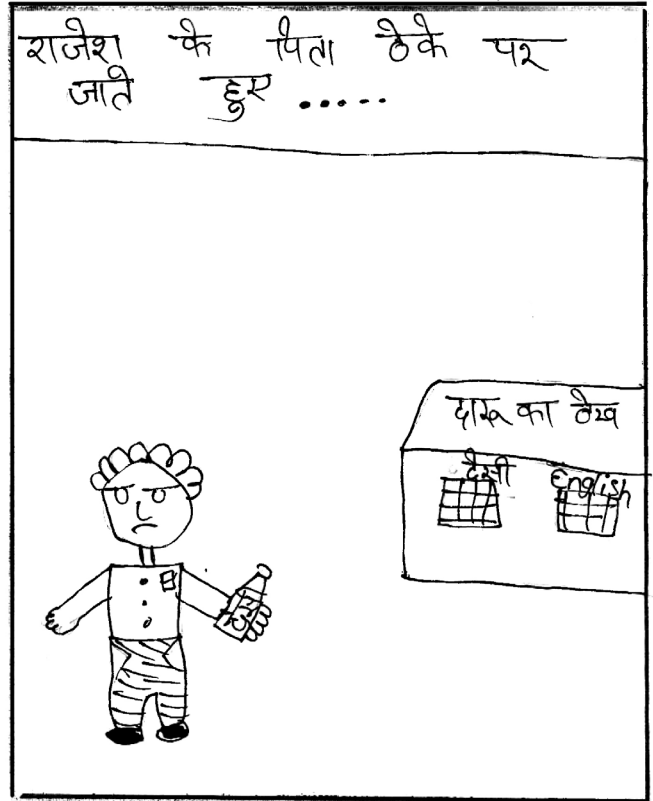 राजेश के पिता ठेके पर
जाते हुए .....
दारू का ठेख
देसी
English